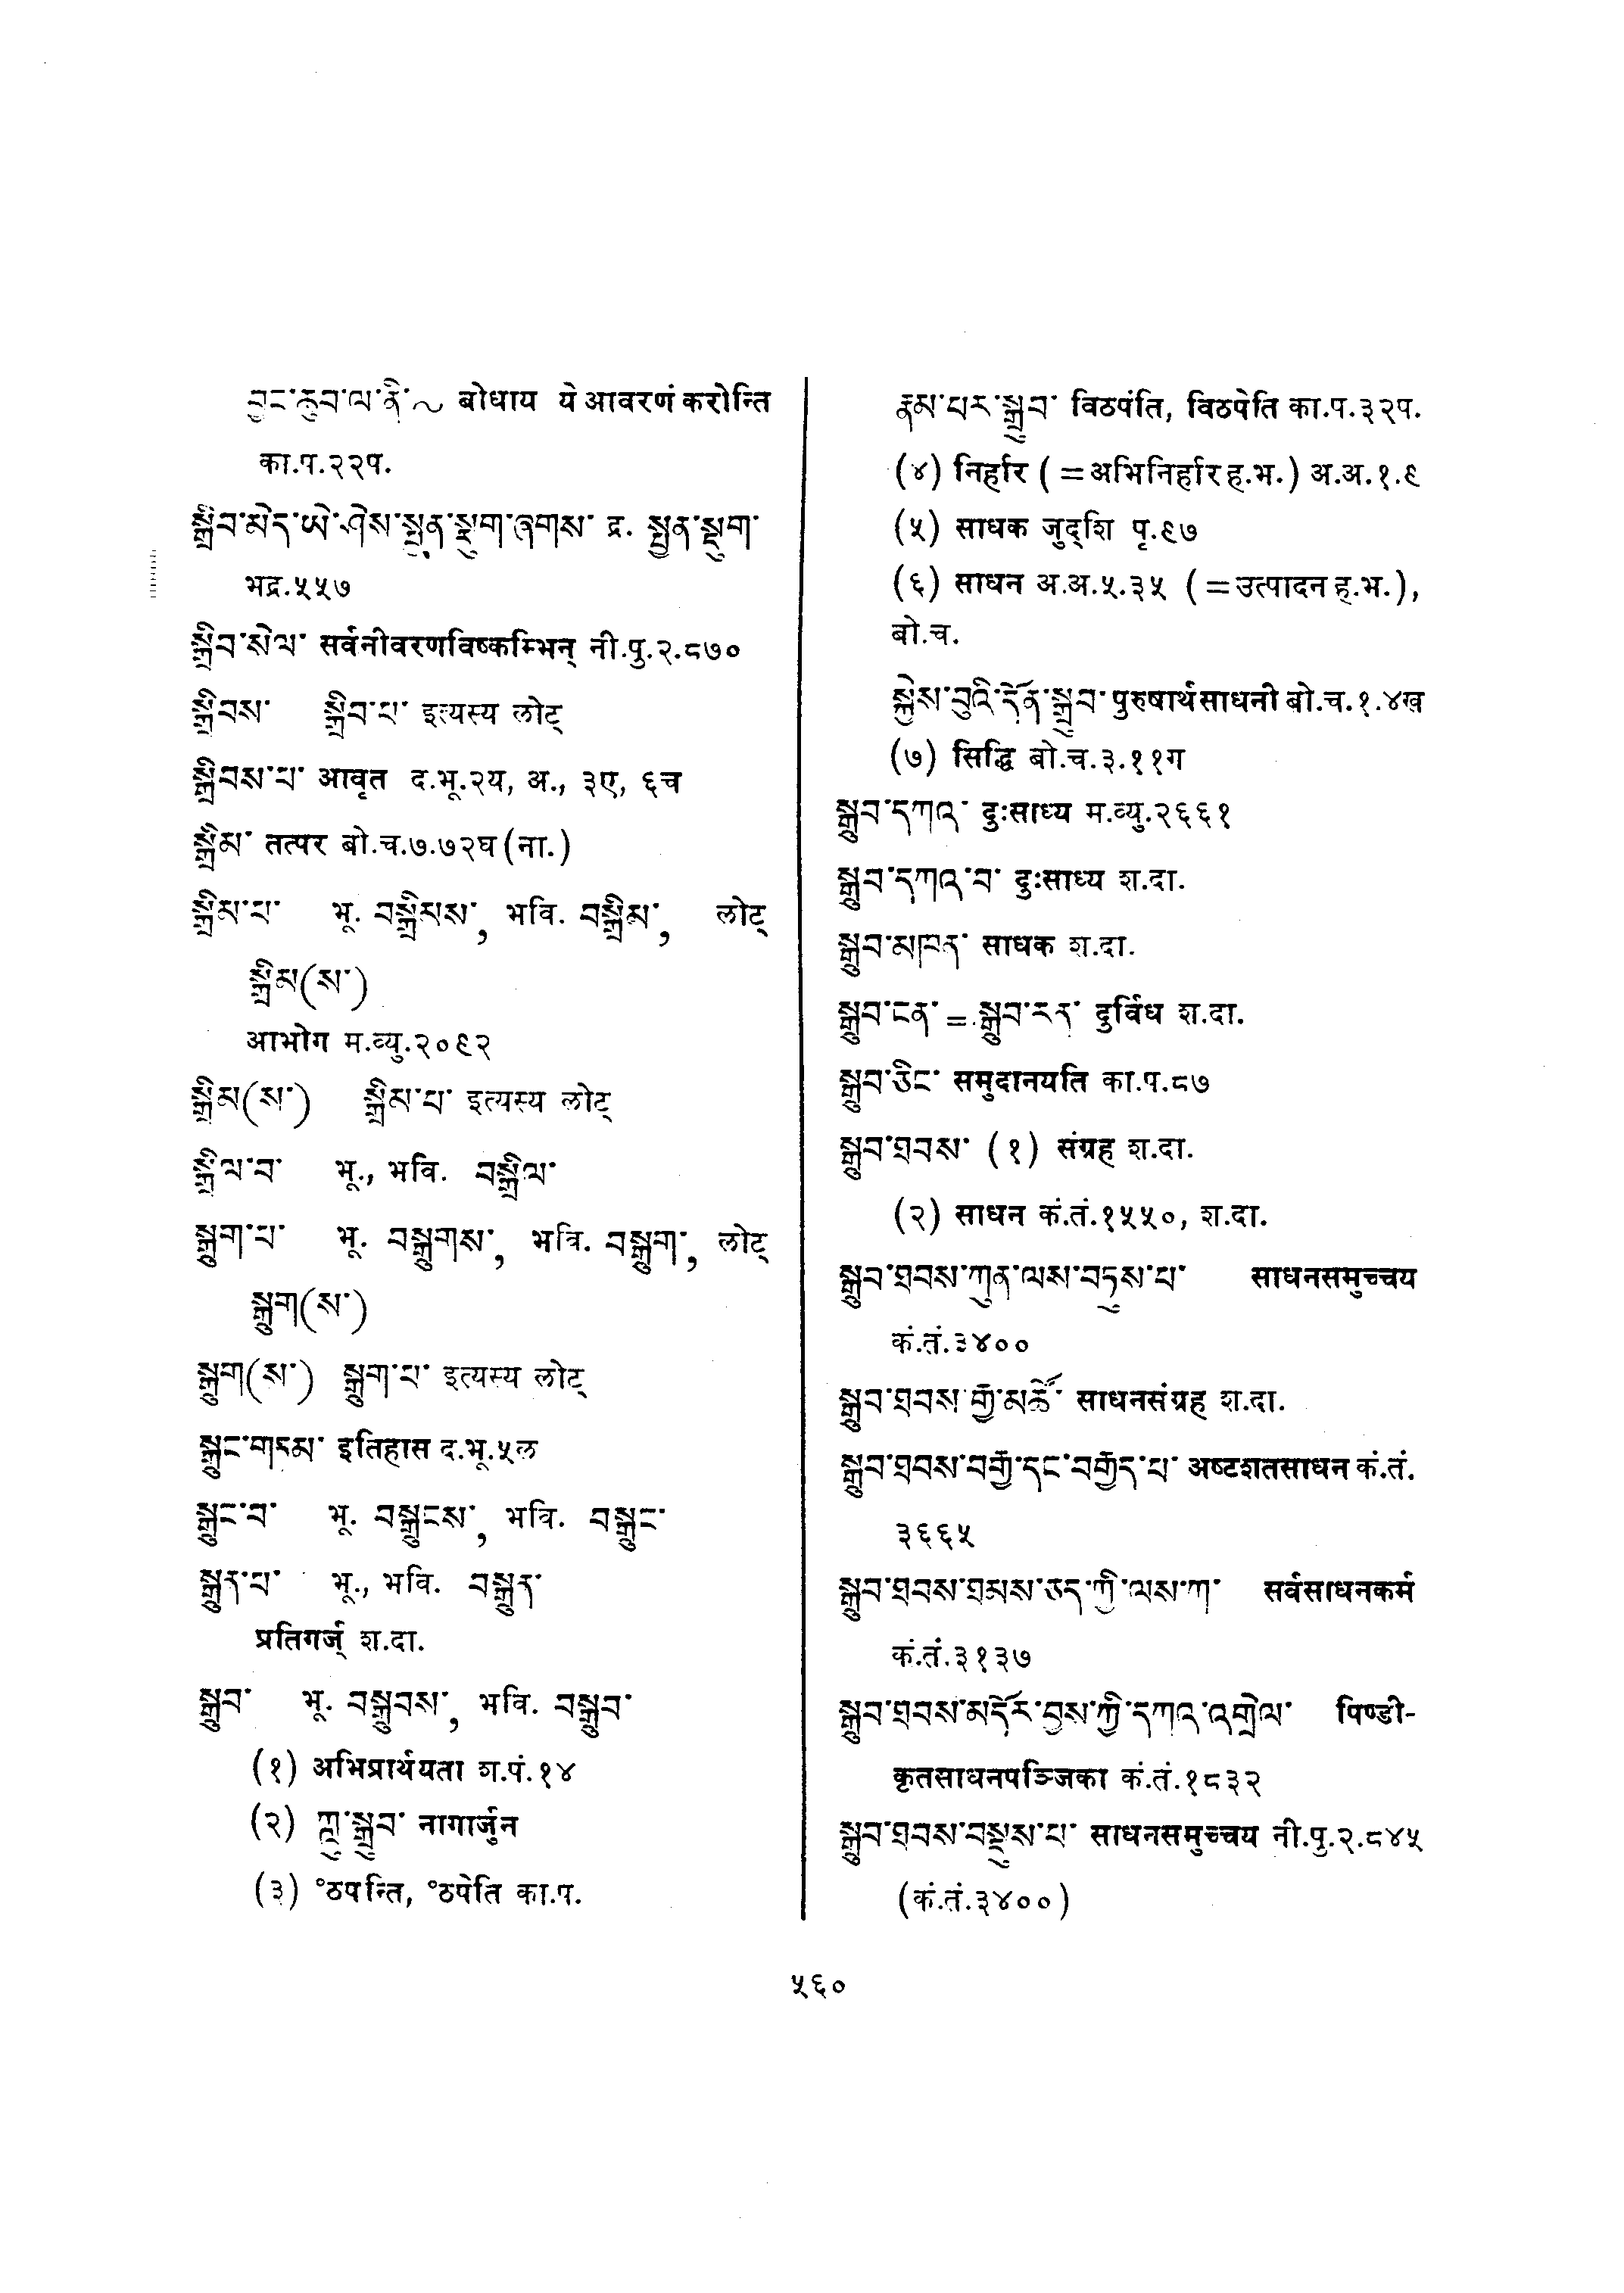 བྱང་ཆུབ་ལ་ནི་~ बोधाय ये आवरणं करोन्ति
का.प.२२प.
སྒྲིབ་མེད་ཡེ་ཤེས་སྤྱན་སྡུག་ཞགས་ द्र. སྤྱན་སྡུག་
भद्र.५५७
སྒྲིབ་སེལ་ सर्वनीवरणविष्कम्भिन् नी.पु.२.८७०
སྒྲིབས་ སྒྲིབ་པ་ इत्यस्य लोट्
སྒྲིབས་པ་ आवृत द.भू.२य, अ., ३ए, ६च
སྒྲིམ་ तत्पर बो.च.७.७२घ(ना.)
སྒྲིམ་པ་ भू. བསྒྲིམས་, भवि. བསྒྲིམ་, लोट्
སྒྲིམ(ས་)
आभोग म.व्यु.२०९२
སྒྲིམ(ས་) སྒྲིམ་པ་ इत्यस्य लोट्
སྒྲིལ་བ་ भू., भवि. བསྒྲིལ་
སྒྲུག་པ་ भू. བསྒྲུགས་, भवि. བསྒྲུག་, लोट्
སྒྲུག(ས་)
སྒྲུག(ས་) སྒྲུག་པ་ इत्यस्य लोट्
སྒྲུང་གཏམ་ इतिहास द.भू.५ल
སྒྲུང་བ་ भू. བསྒྲུངས་, भवि. བསྒྲུང་
སྒྲུན་པ་ भू., भवि. བསྒྲུན་
प्रतिगर्ज् श.दा.
སྒྲུབ་ भू. བསྒྲུབས་, भवि. བསྒྲུབ་
(१) अभिप्रार्थयता श.पं.१४
(२) ཀླུ་སྒྲུབ་ नागार्जुन
(३) °ठपन्ति, °ठपेति का.प.
རྣམ་པར་སྒྲུབ་ विठपंति, विठपेति का.प.३२प.
(४) निर्हार (=अभिनिर्हार ह.भ.) अ.अ.१.९
(५) साधक जुद्शि पृ.९७
(६) साधन अ.अ.५.३५ (=उत्पादन ह.भ.),
बो.च.
སྐྱེས་བུའི་དོན་སྒྲུབ་ पुरुषार्थसाधनी बो.च.१.४ख
(७) सिद्धि बो.च.३.११ग
སྒྲུབ་དཀའ་ दुःसाध्य म.व्यु.२६६१
སྒྲུབ་དཀའ་བ་ दुःसाध्य श.दा.
སྒྲུབ་མཁན་ साधक श.दा.
སྒྲུབ་ངན་=སྒྲུབ་ངན་ दुर्विध श.दा.
སྒྲུབ་ཅིང་ समुदानयति का.प.८७
སྒྲུབ་ཐབས་ (१) संग्रह श.दा.
(२) साधन कं.तं.१५५०, श.दा.
སྒྲུབ་ཐབས་ཀུན་ལས་བཏུས་པ་ साधनसमुच्चय
कं.तं.३४००
སྒྲུབ་ཐབས་རྒྱ་མཚོ་ साधनसंग्रह श.दा.
སྒྲུབ་ཐབས་བརྒྱ་དང་བརྒྱད་པ་ अष्टशतसाधन कं.तं.
३६६५
སྒྲུབ་ཐབས་ཐམས་ཅད་ཀྱི་ལས་ཀ་ सर्वसाधनकर्म
कं.तं.३१३७
སྒྲུབ་ཐབས་མདོར་བྱས་ཀྱི་དཀའ་འགྲེལ་ पिण्डी-
कृतसाधनपञ्जिका कं.तं.१८३२
སྒྲུབ་ཐབས་བསྡུས་པ་ साधनसमुच्चय नी.पु.२.८४५
(कं.तं.३४००)
५६०